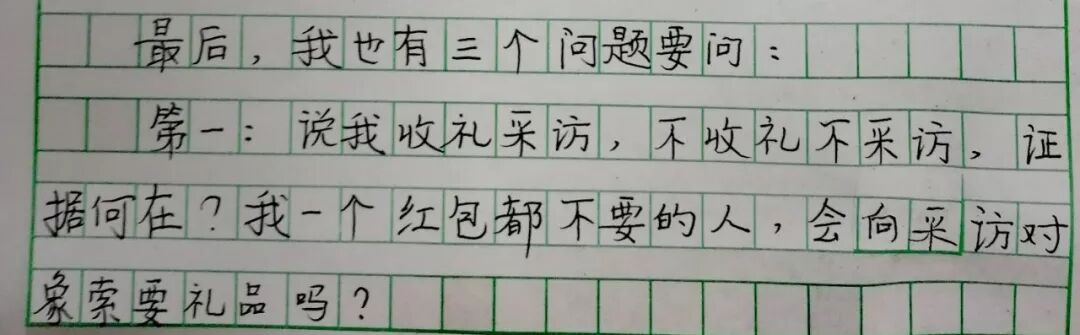 最后，我也有三个问题要问：
第一：说我收礼采访，不收礼不采访，证
据何在？我一个红包都不要的人，会向采访对
象索要礼品吗？